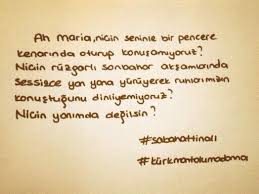 Ah maria, niçin seninle bir pencere
kenarında oturup konuşamıyoruz?
Niçin rüzgarlı sonbahar akşamlarında
sessizce yan yana yürüyerek ruhlarımızın
konuştuğunu dinliyemiyoruz?
Niçin yanımda değilsin?
#sabahattinali
#kürkmantolumadonna